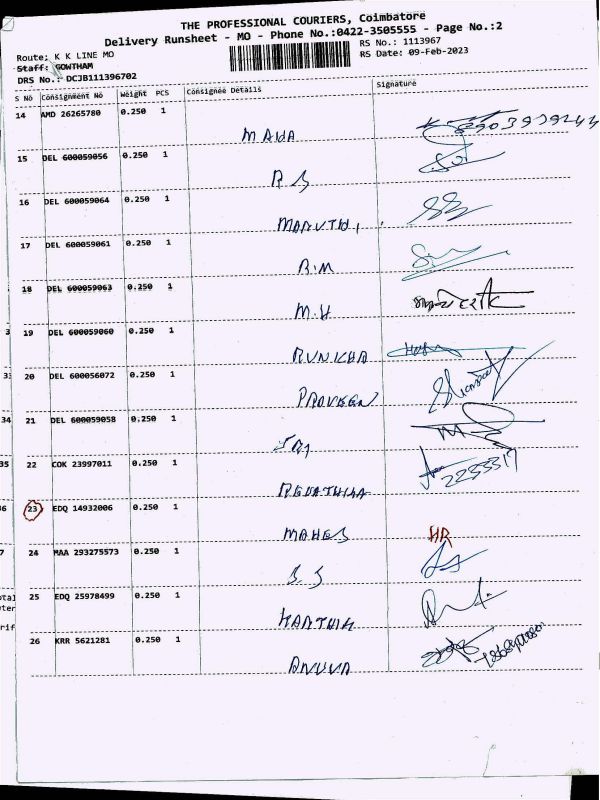 THE PROFESSIONAL COURIERS, Coimbatore
Delivery Runsheet - MO - Phone No.:0422-3505555 - Page No.:2
Route: K K LINE MO
RS No.: 1113967
Staff: GOWTHAM
RS Date: 09-Feb-2023
DRS No.: DCJB111396702
S No Consignment No Weight PCS Consignee Details Signature
14 AMD 26265780 0.250 1
MAHA
15 DEL 600059056 0.250 1
R S
16 DEL 600059064 0.250 1
MARUTHI
17 DEL 600059061 0.250 1
B.M
18 DEL 600059063 0.250 1
M.H
19 DEL 600059060 0.250 1
20 DEL 600056072 0.250 1
PRAVEEN
21 DEL 600059058 0.250 1
22 COK 23997011 0.250 1
2233317
REVATHIHA
23 EDQ 14932006 0.250 1
MAHES HR
24 MAA 293275573 0.250 1
S S
25 EDQ 25978499 0.250 1
KARTHIK
26 KRR 5621281 0.250 1